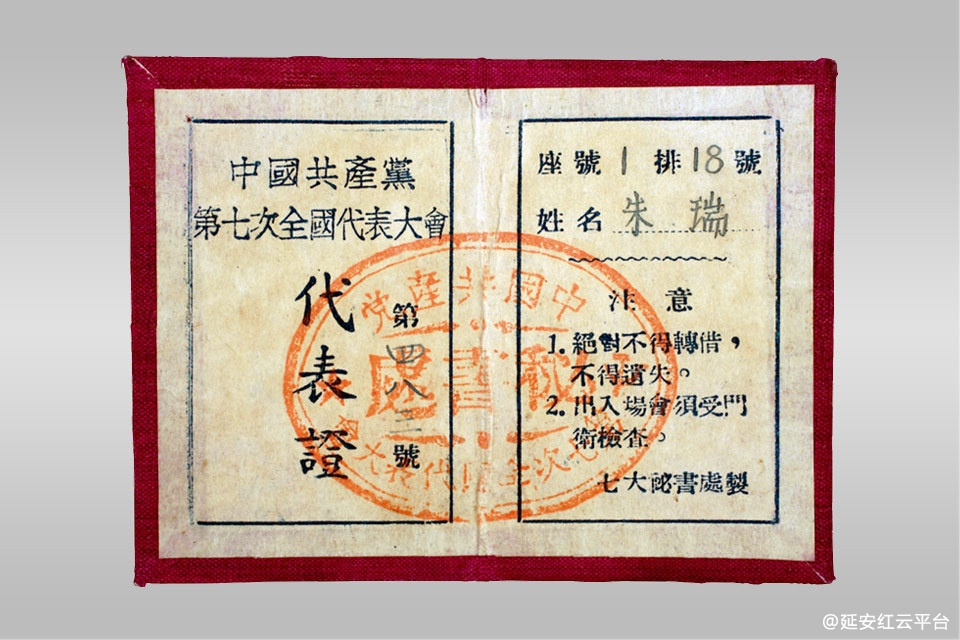 中國共產黨
第七次全國代表大會
代表證
第四八三號
座號1排18號
姓名朱瑞
注意
1.絕對不得轉借，
不得遺失。
2.出入場會須受門
衛檢查。
七大祕書處製
中國共產党
祕書處
@延安红云平台